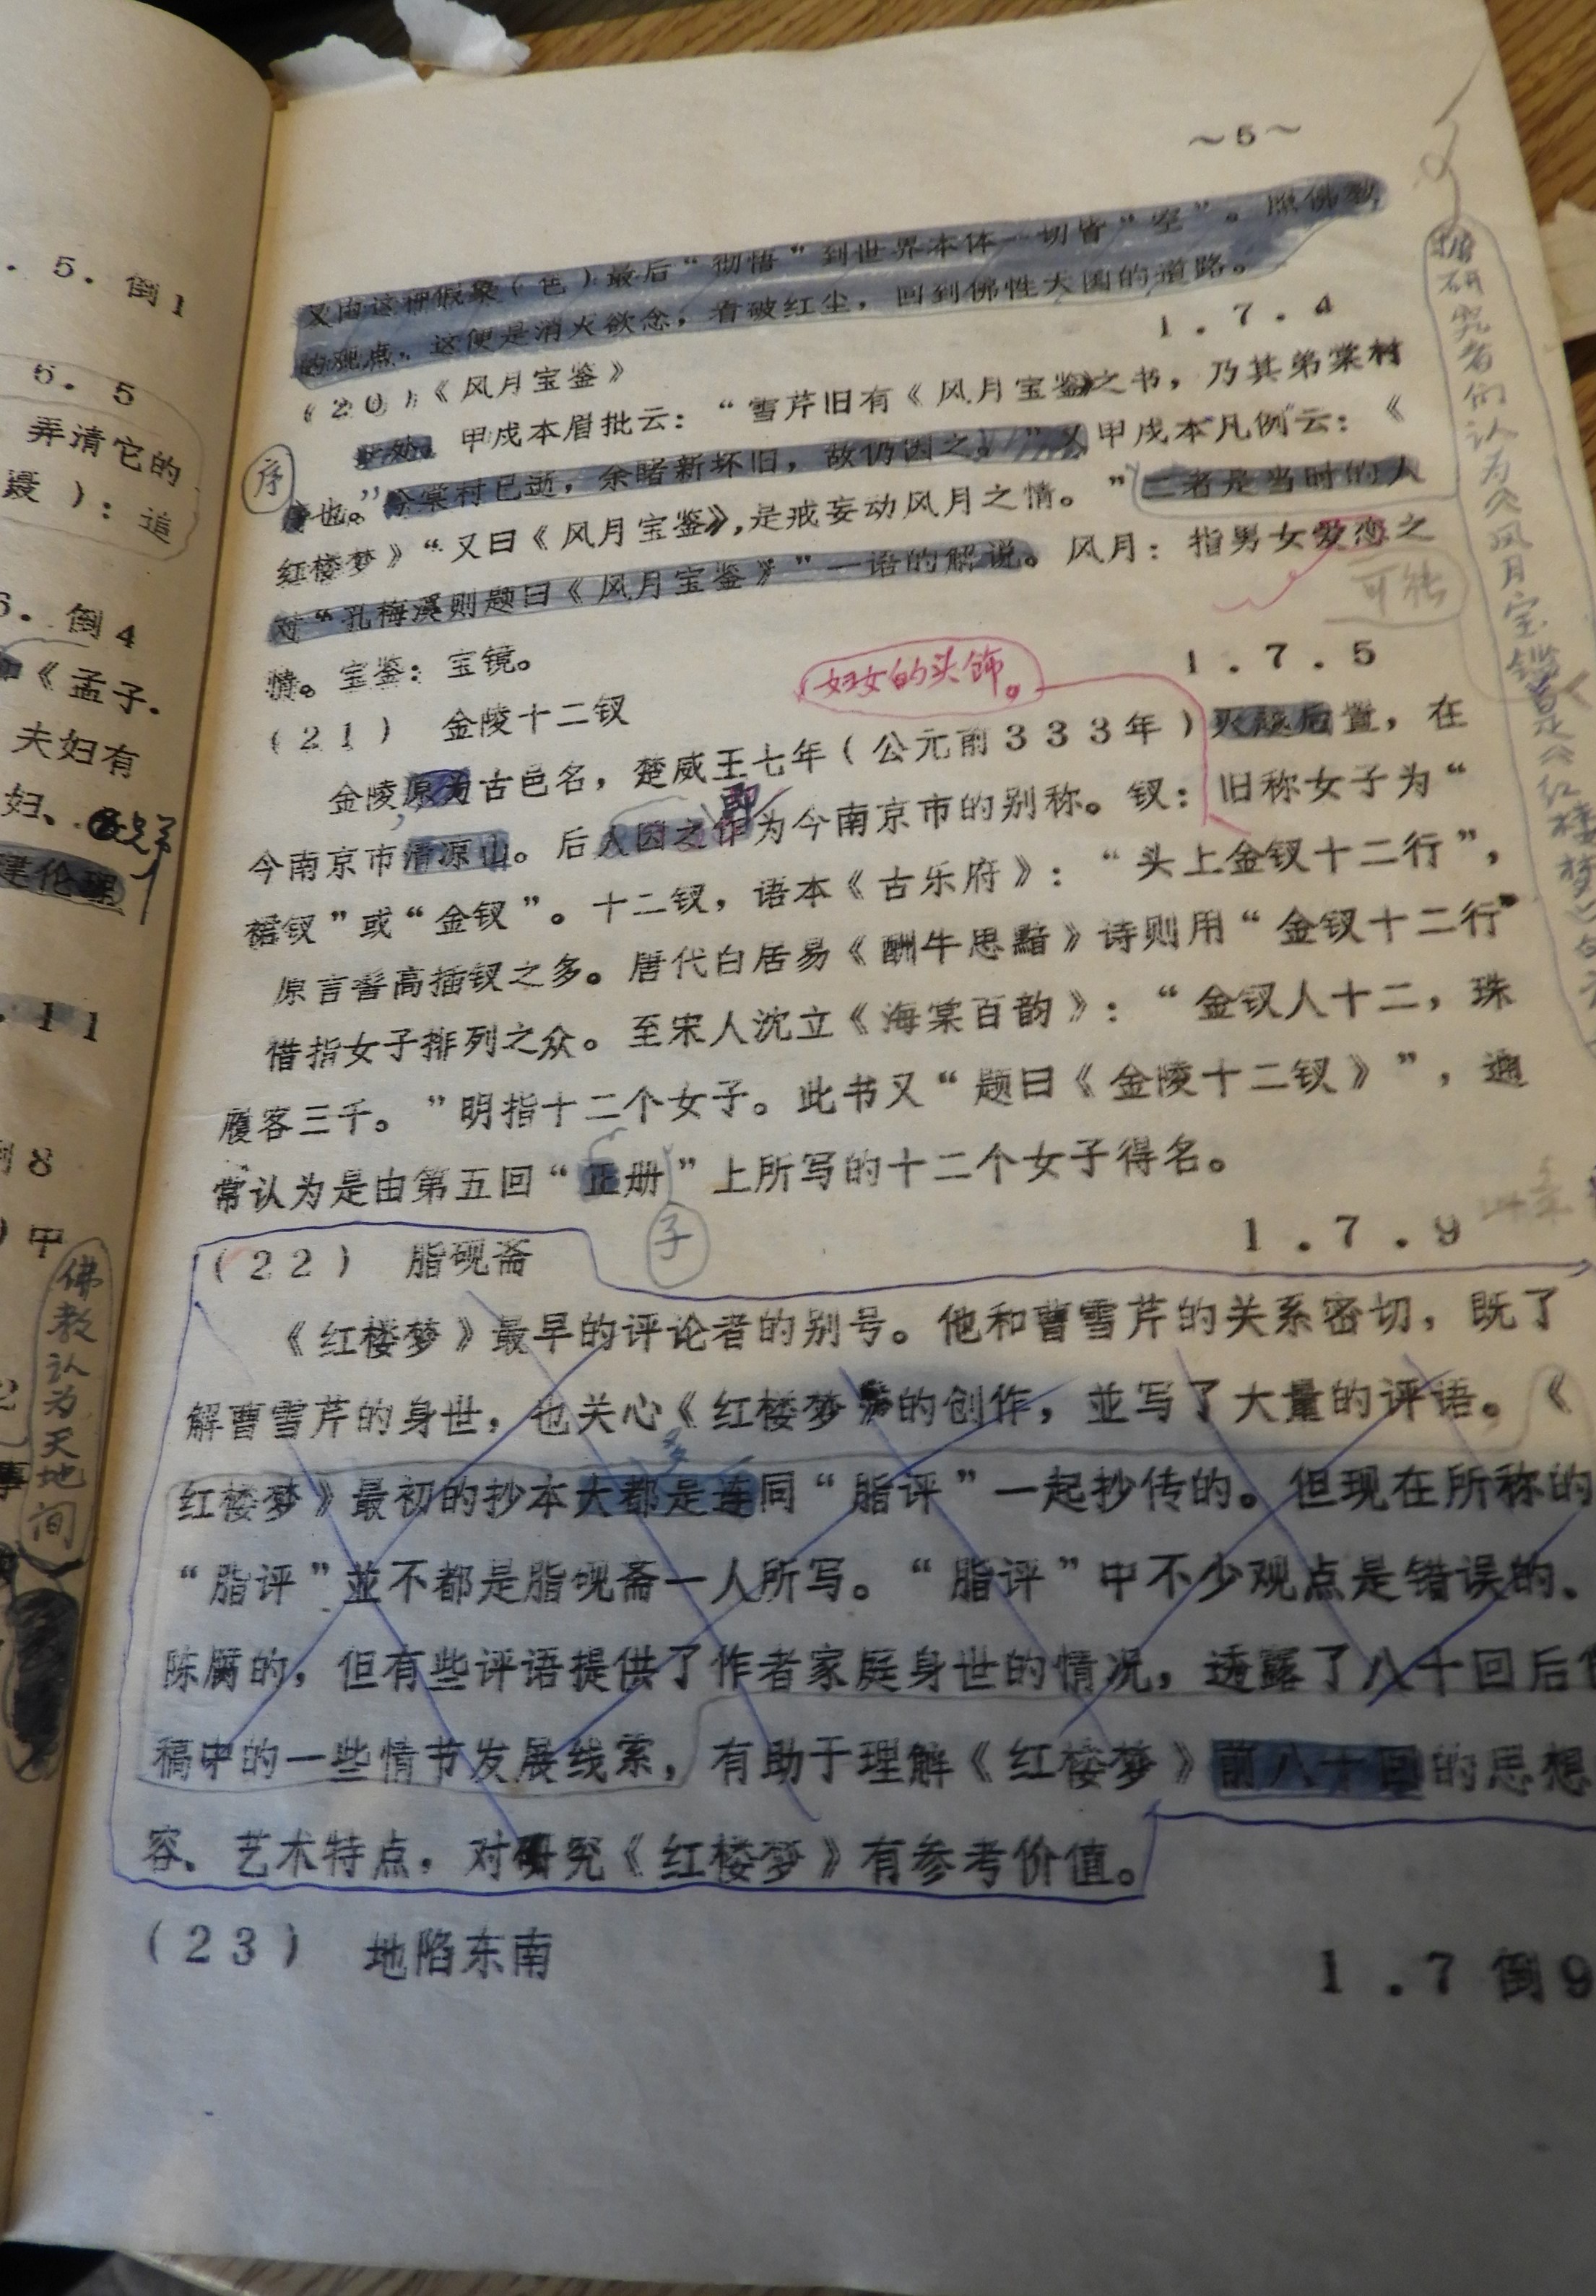 ~5~
又由这种假象(色)最后“彻悟”到世界本体一切皆“空”。照佛教
的观点,这便是消灭欲念,看破红尘,回到佛性天国的道路。
(20)《风月宝鉴》
1.7.4
此处,甲戌本眉批云:“雪芹旧有《风月宝鉴》之书,乃其弟棠村
序
序也。”今棠村已逝,余睹新怀旧,故仍因之。”又甲戌本凡例云:《
红楼梦》“又曰《风月宝鉴》,是戒妄动风月之情。”二者是当时的人
对“孔梅溪则题曰《风月宝鉴》”一语的解说。风月:指男女爱恋之
可能
情。宝鉴:宝镜。
妇女的头饰。
1.7.5
(21) 金陵十二钗
金陵原为古邑名,楚威王七年(公元前333年)灭越后置,在
即
今南京市清凉山。后人因之作为今南京市的别称。钗:旧称女子为“
裙钗”或“金钗”。十二钗,语本《古乐府》:“头上金钗十二行”,
原言髻高插钗之多。唐代白居易《酬牛思黯》诗则用“金钗十二行”
借指女子排列之众。至宋人沈立《海棠百韵》:“金钗人十二,珠
履客三千。”明指十二个女子。此书又“题曰《金陵十二钗》”,通
常认为是由第五回“正册”上所写的十二个女子得名。
子
1.7.9
(22) 脂砚斋
《红楼梦》最早的评论者的别号。他和曹雪芹的关系密切,既了
解曹雪芹的身世,也关心《红楼梦》的创作,並写了大量的评语。《
红楼梦》最初的抄本大都是连同“脂评”一起抄传的。但现在所称的
“脂评”並不都是脂砚斋一人所写。“脂评”中不少观点是错误的、
陈腐的,但有些评语提供了作者家庭身世的情况,透露了八十回后
稿中的一些情节发展线索,有助于理解《红楼梦》前八十回的思想
容、艺术特点,对研究《红楼梦》有参考价值。
(23) 地陷东南
1.7倒9
研究者们认为《风月宝鉴》是《红楼梦》
.5.倒1
5.5
弄清它的
):道
.倒4
《孟子.
夫妇有
妇、
建伦理
.11
8
中
佛教认为天地间